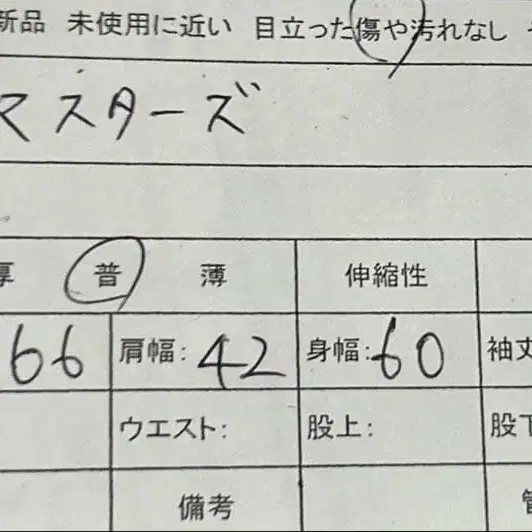 新品 未使用に近い 目立った傷や汚れなし
マスターズ
厚 普 薄 伸縮性
66 肩幅: 42 身幅: 60 袖丈
ウエスト: 股上: 股下
備考